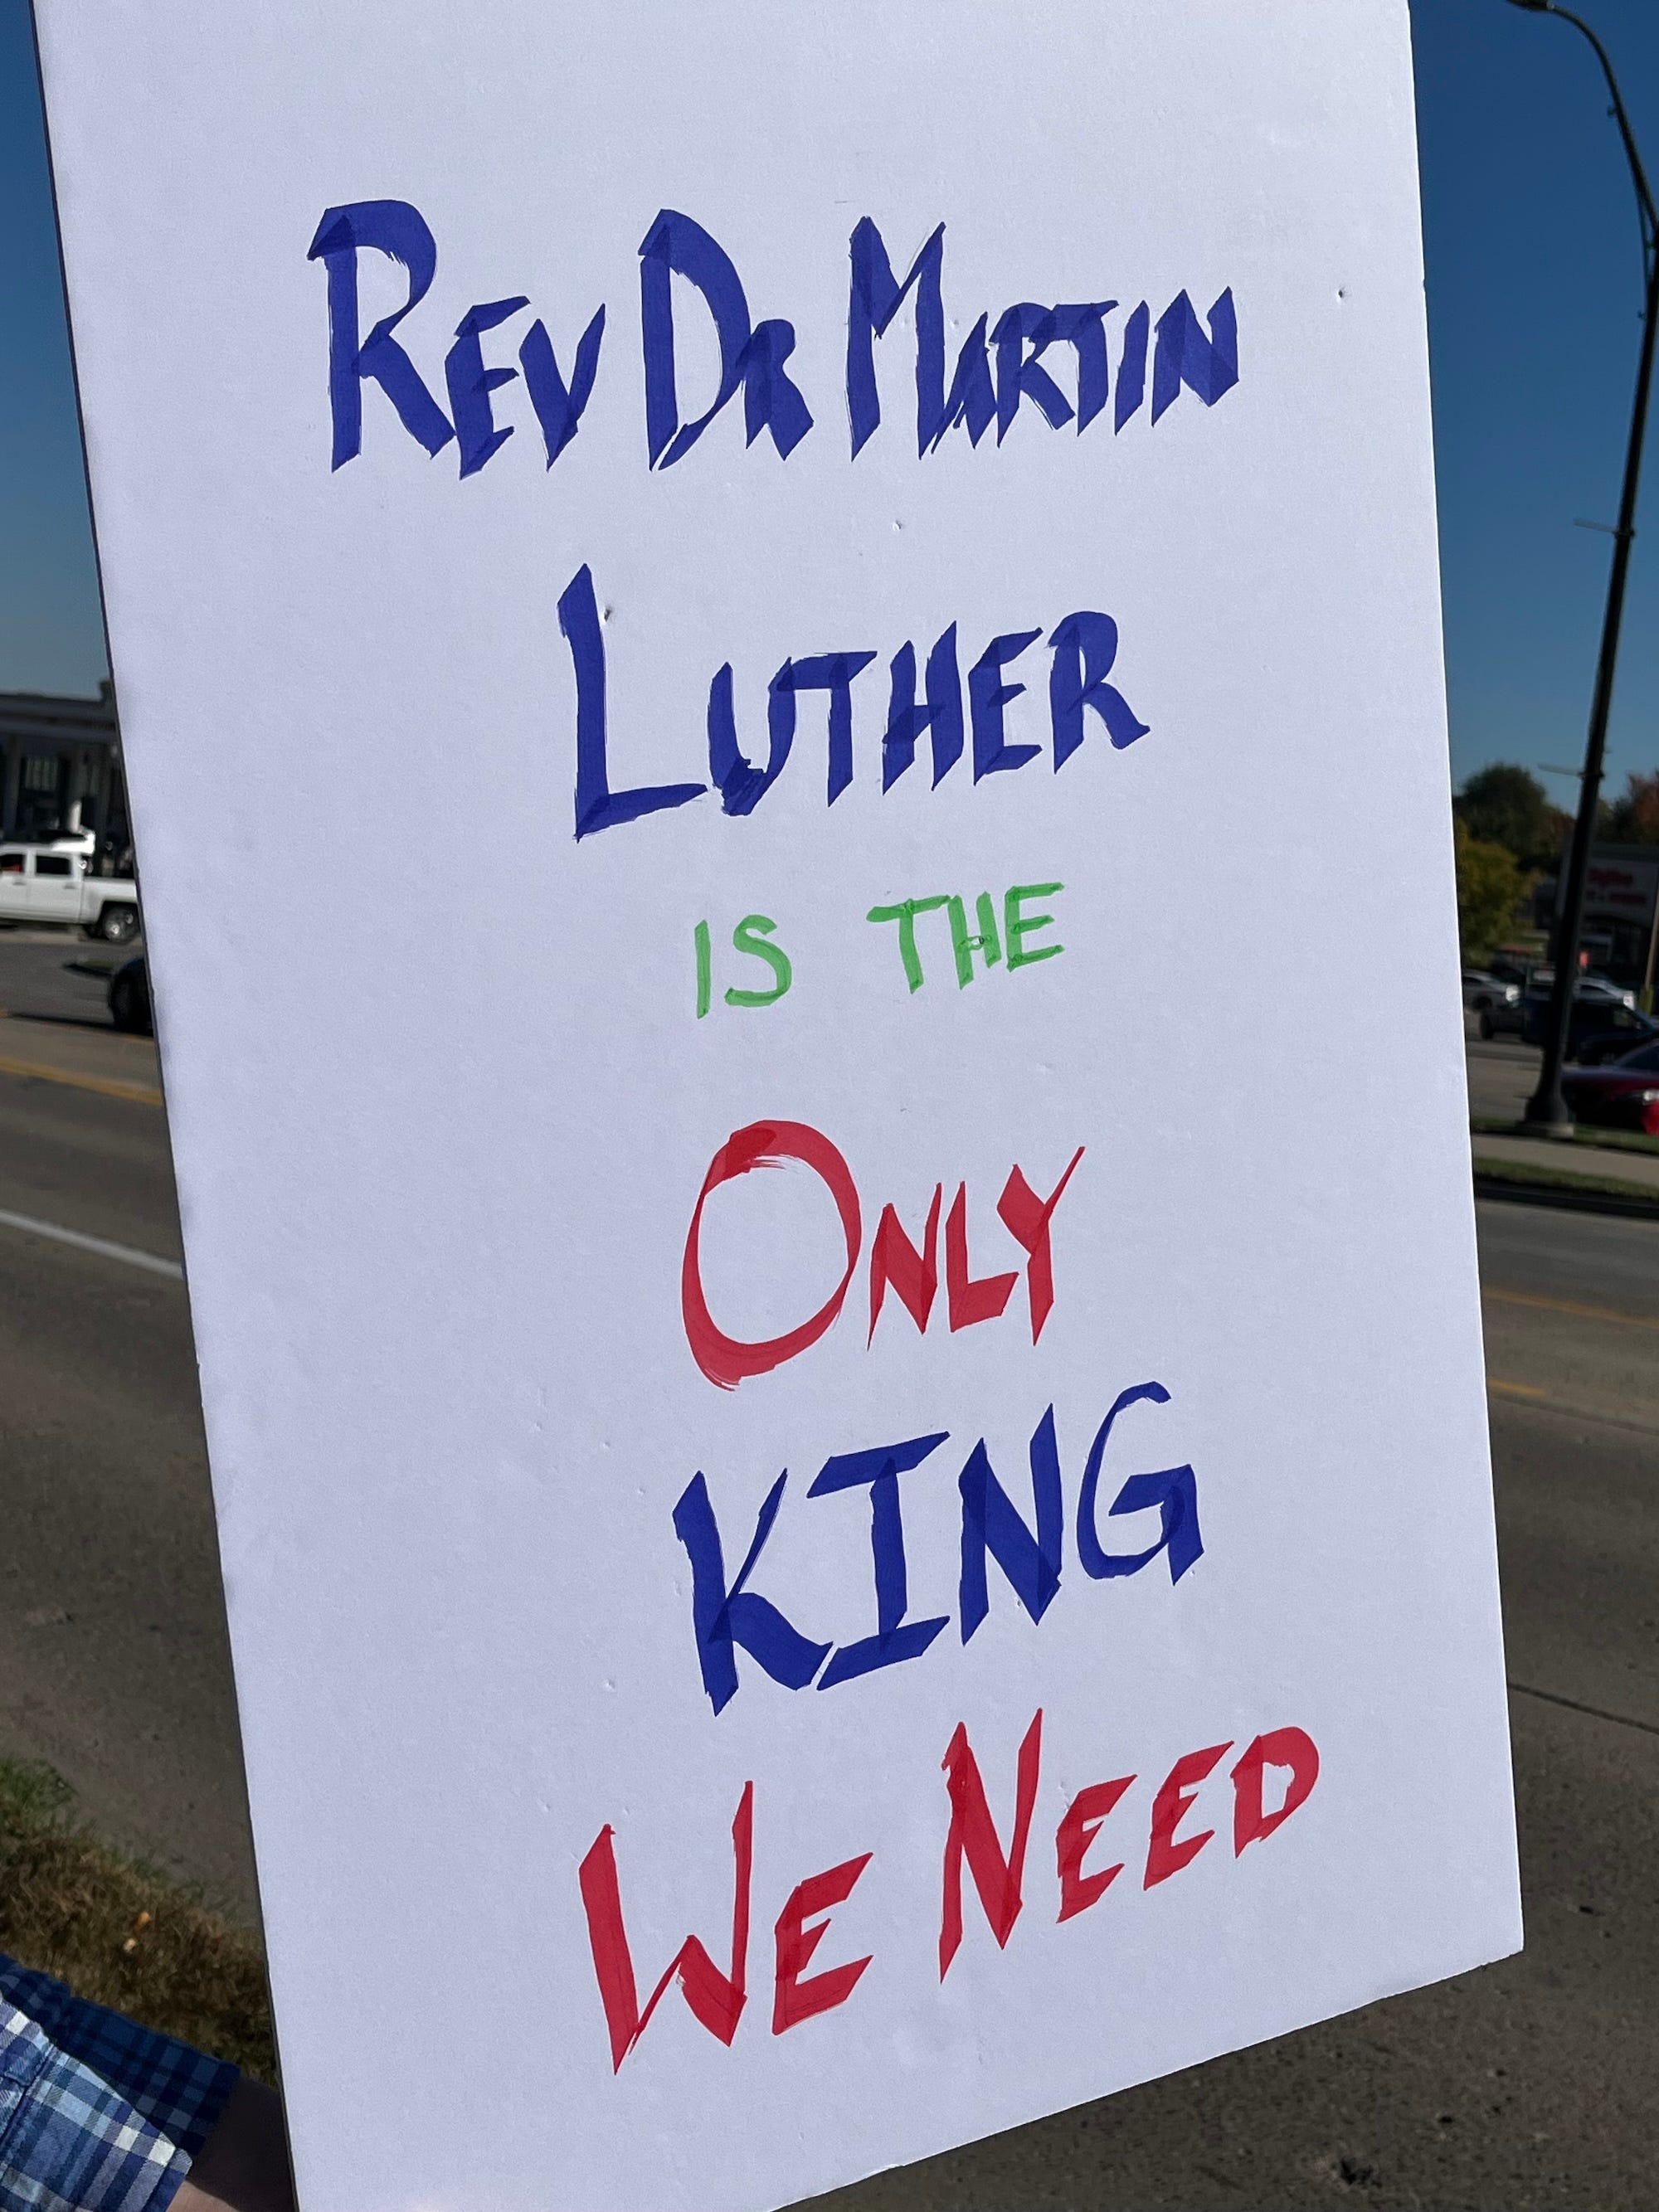 REV DR MARTIN
LUTHER
IS THE
ONLY
KING
WE NEED